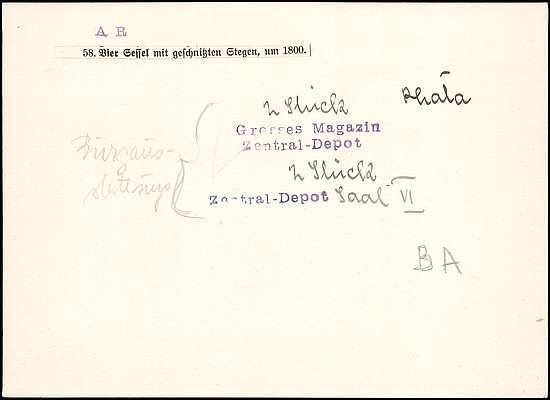 A R
58. Vier Sessel mit geschnitzten Stegen, um 1800.
2 Stück
Grosses Magazin
Zentral-Depot
2 Stück
Zentral-Depot Saal VI
Burgaus-
stattung
BA